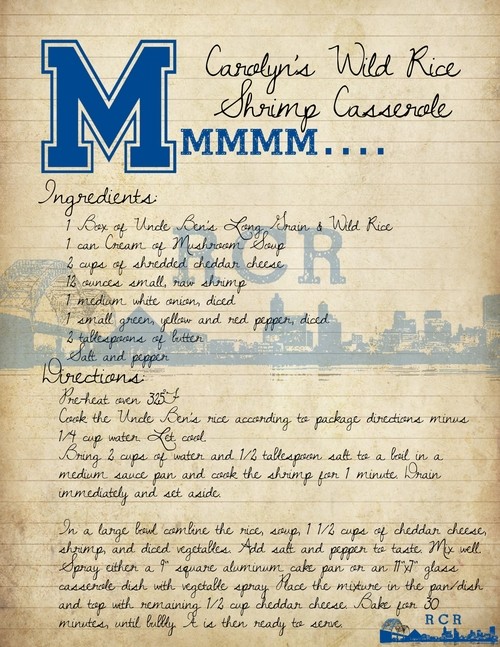 M
Carolyn's Wild Rice
Shrimp Casserole
MMMM....
Ingredients:
1 Box of Uncle Ben's Long Grain & Wild Rice
1 can Cream of Mushroom Soup
2 cups of shredded cheddar cheese
12 ounces small, raw shrimp
1 medium white onion, diced
1 small green, yellow and red pepper, diced
2 tablespoons of butter
Salt and pepper
RCR
Directions:
Pre-heat oven 325°F
Cook the Uncle Ben's rice according to package directions minus
1/4 cup water. Let cool.
Bring 2 cups of water and 1/2 tablespoon salt to a boil in a
medium sauce pan and cook the shrimp for 1 minute. Drain
immediately and set aside.
In a large bowl combine the rice, soup, 1 1/2 cups of cheddar cheese,
shrimp, and diced vegetables. Add salt and pepper to taste. Mix well.
Spray either a 9" square aluminum cake pan or an 11"x7" glass
casserole dish with vegetable spray. Place the mixture in the pan/dish
and top with remaining 1/2 cup cheddar cheese. Bake for 30
minutes, until bubbly. It is then ready to serve.
RCR